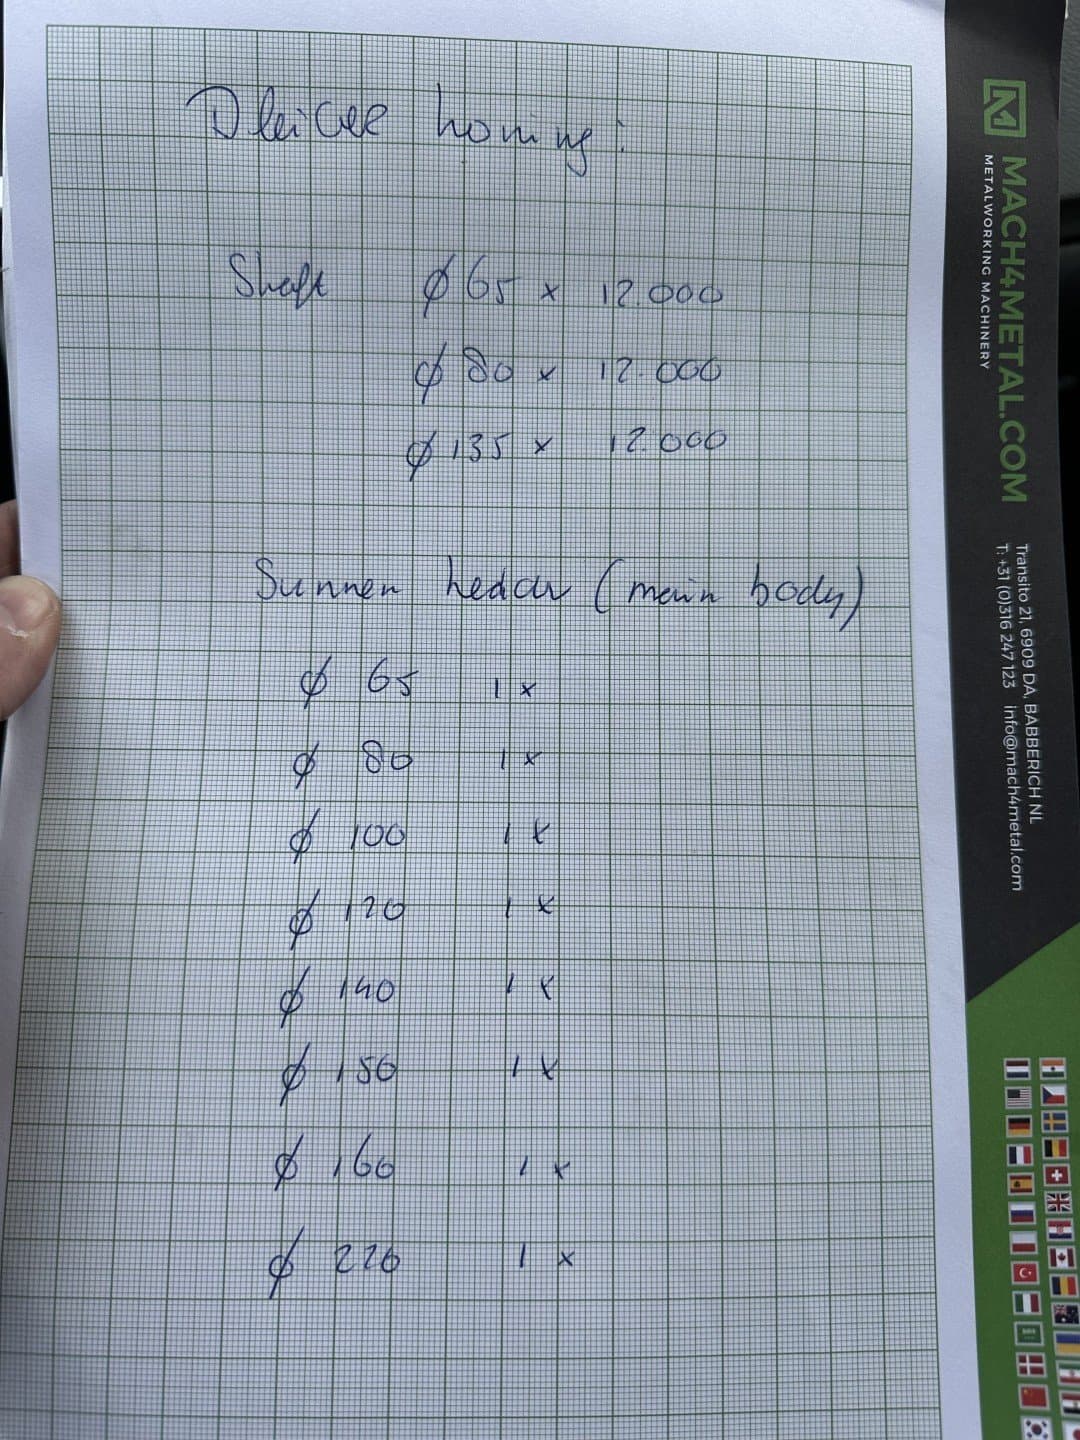 honing:
Shaft ϕ 65 x 12.000
ϕ 80 x 12.000
ϕ 135 x 12.000
Sunnen header (main body)
ϕ 65 1 x
ϕ 80 1 x
ϕ 100 1 x
ϕ 120 1 x
ϕ 140 1 x
ϕ 150 1 x
ϕ 160 1 x
ϕ 220 1 x
MACH4METAL.COM
METALWORKING MACHINERY
Transito 21, 6909 DA, BABBERICH NL
T: +31 (0)316 247 123 info@mach4metal.com